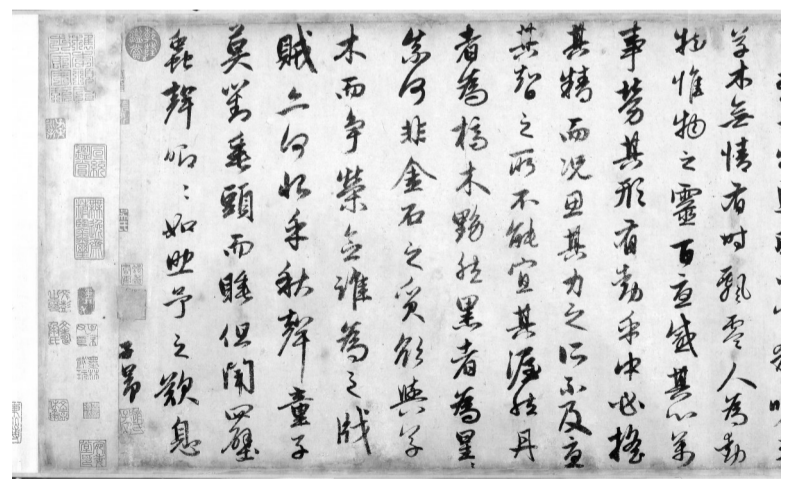 草木無情有時飄零人為動
物惟物之靈百憂感其心萬
事勞其形有動乎中必搖
其精而況思其力之所不及憂
其智之所不能宜其渥然丹
者為槁木黟然黑者為星〻
奈何非金石之質欲與草
木而爭榮念誰為之戕
賊亦何恨乎秋聲童子
莫對垂頭而睡但聞四壁
蟲聲唧〻如助予之歎息
子昂